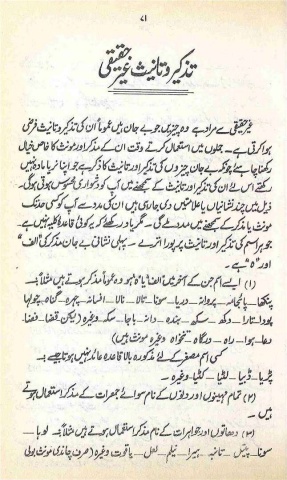 ۷۱
تذکیر و تانیث غیر حقیقی
غیر حقیقی سے مراد ہے وہ چیزیں جو بے جان ہیں عموماً ان کی تذکیر و تانیث فرضی
ہوا کرتی ہے۔ جملوں میں استعمال کرتے وقت ان کے مذکر اور مونث کا خاص خیال
رکھنا چاہئے چونکہ بے جان چیزوں کی تذکیر اور تانیث کا ذکر ہے جو اپنا نر یا مادہ نہیں
رکھتے اس لئے ان کی تذکیر اور تانیث کے سمجھنے میں آپ کو دشواری محسوس ہوتی ہوگی۔
ذیل میں چند نشانیاں یا علامتیں دی جا رہی ہیں ان کی مدد سے آپ کو کسی حد تک
مونث یا مذکر کے سمجھنے میں مدد ملے گی۔ مگر یاد رکھئے کہ یہ کوئی قاعدہ کلیہ نہیں ہے
جو ہر اسم کی تذکیر اور تانیث پر پورا اترے۔ پہلی نشانی بے جان مذکر کی "الف"
اور "ہ" ہے۔
(۱) ایسے اسم جن کے آخر میں الف یا ہ ہو وہ عموماً مذکر ہوتے ہیں مثلاً :-
پنکھا۔ پائجامہ۔ پروانہ۔ دریا۔ سونا۔ تالا۔ نالا۔ افسانہ۔ چہرہ۔ گناہ۔ چولہا
پودا۔ تارا۔ دکھ۔ سکھ۔ ہندہ۔ دانہ۔ باجہ۔ سکہ وغیرہ (لیکن قضا۔ فضا
دعا۔ ہوا۔ راہ۔ درگاہ۔ تنخواہ وغیرہ مونث ہیں)
کسی اسم مصغر کے لئے مذکورہ بالا قاعدہ عائد نہیں ہوتا جیسے :-
پڑیا۔ ڈبیا۔ لٹیا۔ کٹیا۔ وغیرہ۔
(۲) تمام مہینوں اور دنوں کے نام سوائے جمعرات کے مذکر استعمال ہوتے
ہیں۔
(۳) دھاتوں اور جواہرات کے نام مذکر استعمال ہوتے ہیں مثلاً :- لوہا۔
سونا۔ پیتل۔ تانبہ۔ ہیرا۔ نیلم۔ لعل۔ یاقوت وغیرہ (صرف چاندی مونث بولی